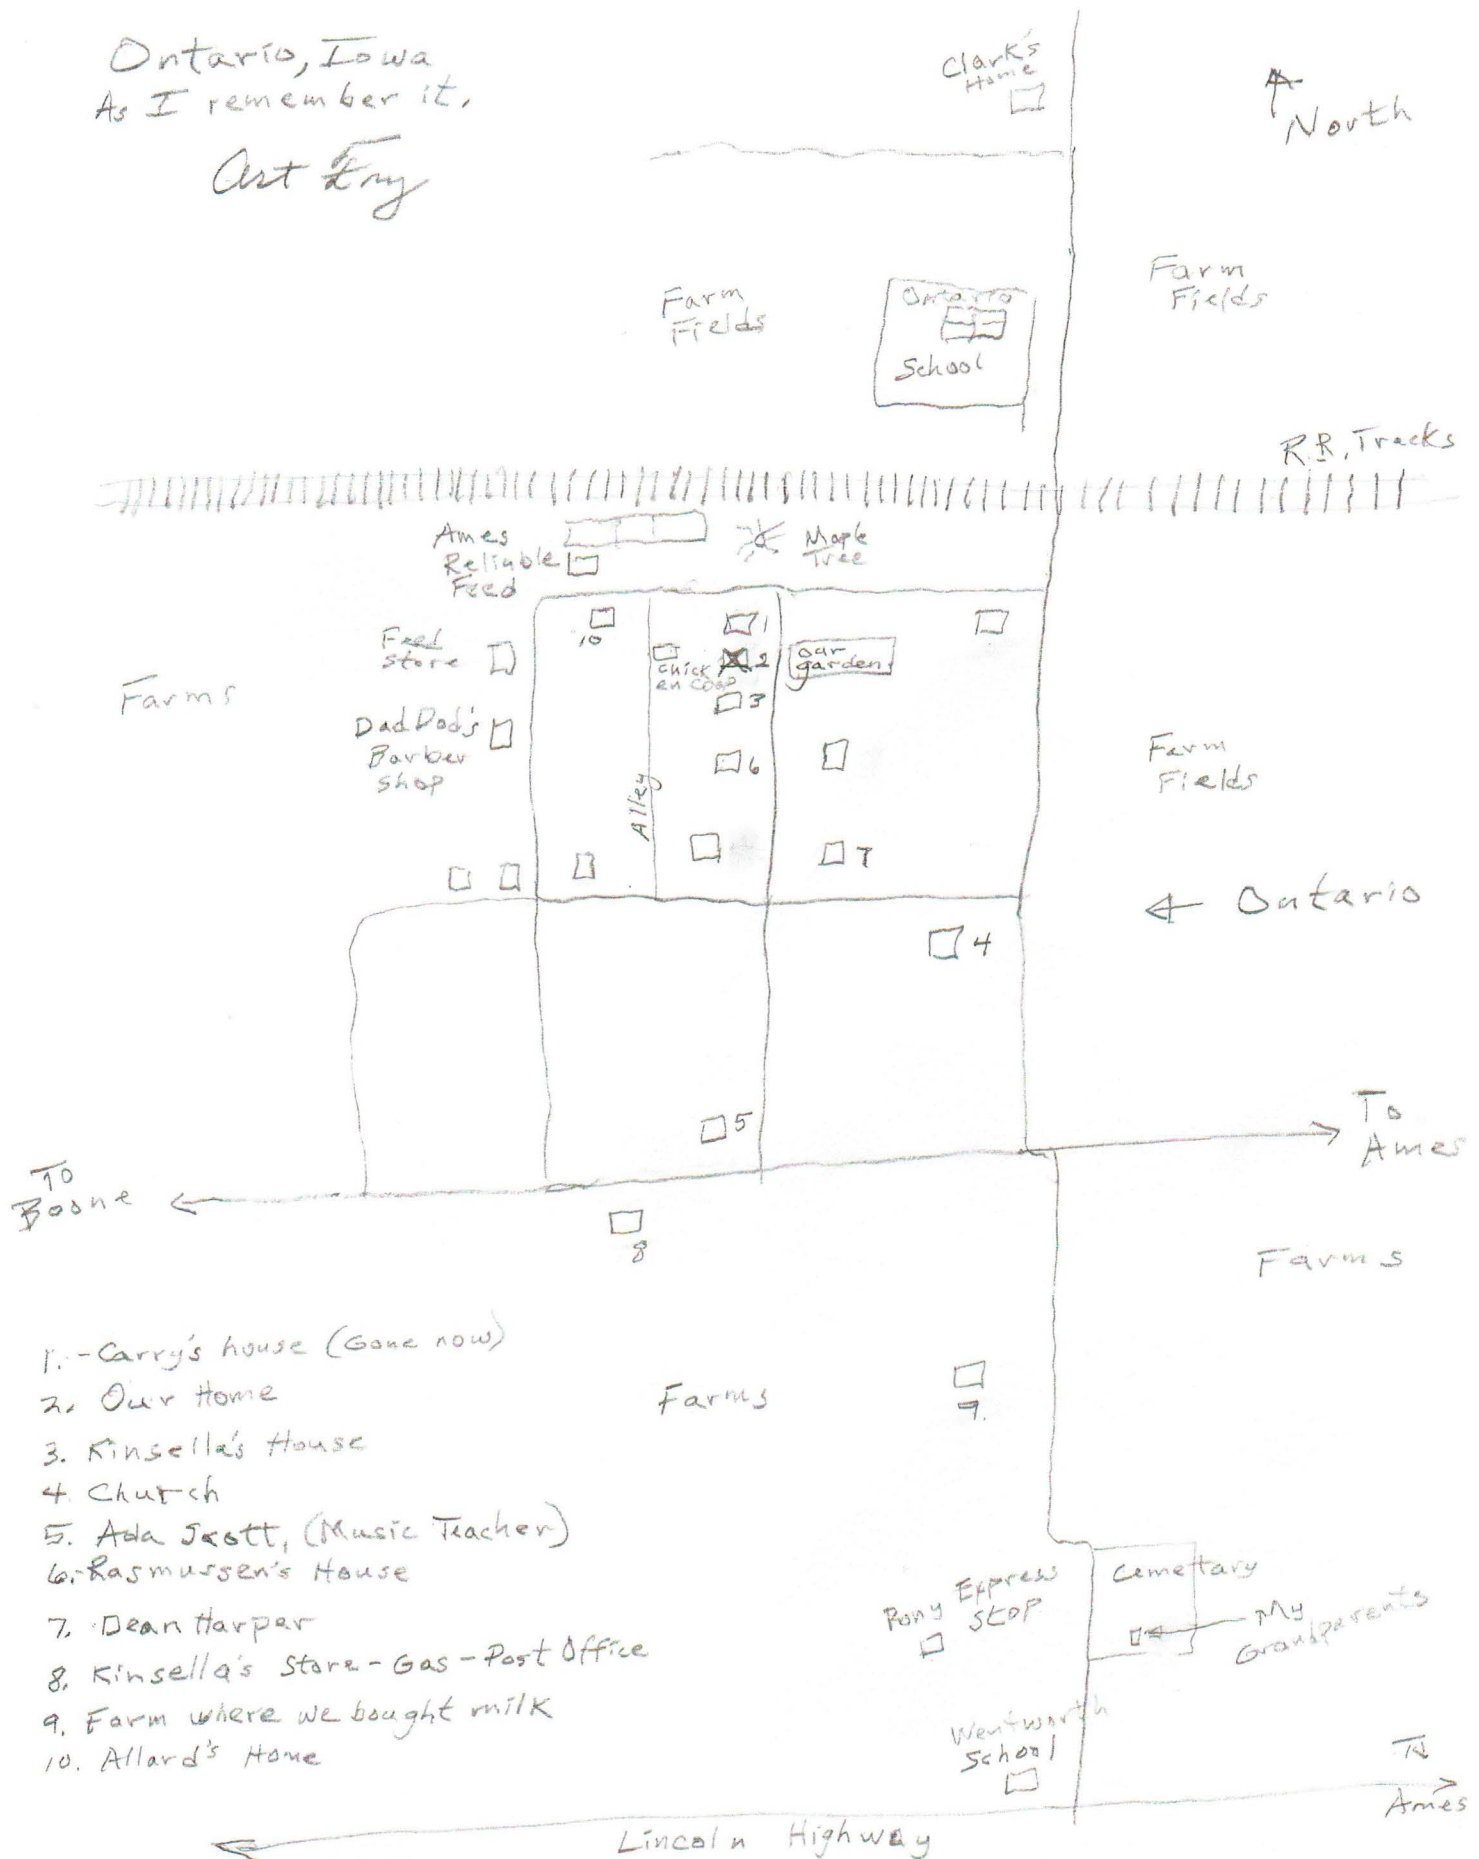 Ontario, Iowa
As I remember it.
Art Fry
Clark's
Home
North
Farm
Fields
Ontario
School
Farm
Fields
R.R. Tracks
Ames
Reliable
Feed
Maple
Tree
10
1
Feed
Store
chick
en coop
2
our
garden
3
Farms
Dad Dod's
Barber
shop
6
Farm
Fields
Alley
7
Ontario
4
5
To
Ames
To
Boone
8
Farms
1. - Carry's house (Gone now)
2. Our Home
3. Kinsella's House
4 Church
5. Ada Scott, (Music Teacher)
6. - Rasmussen's House
7. Dean Harper
8. Kinsella's Store - Gas - Post Office
9. Farm where we bought milk
10. Allard's Home
Farms
9.
Pony Express
Stop
Cemettary
My
Grandparents
Wentworth
School
To
Ames
Lincoln Highway